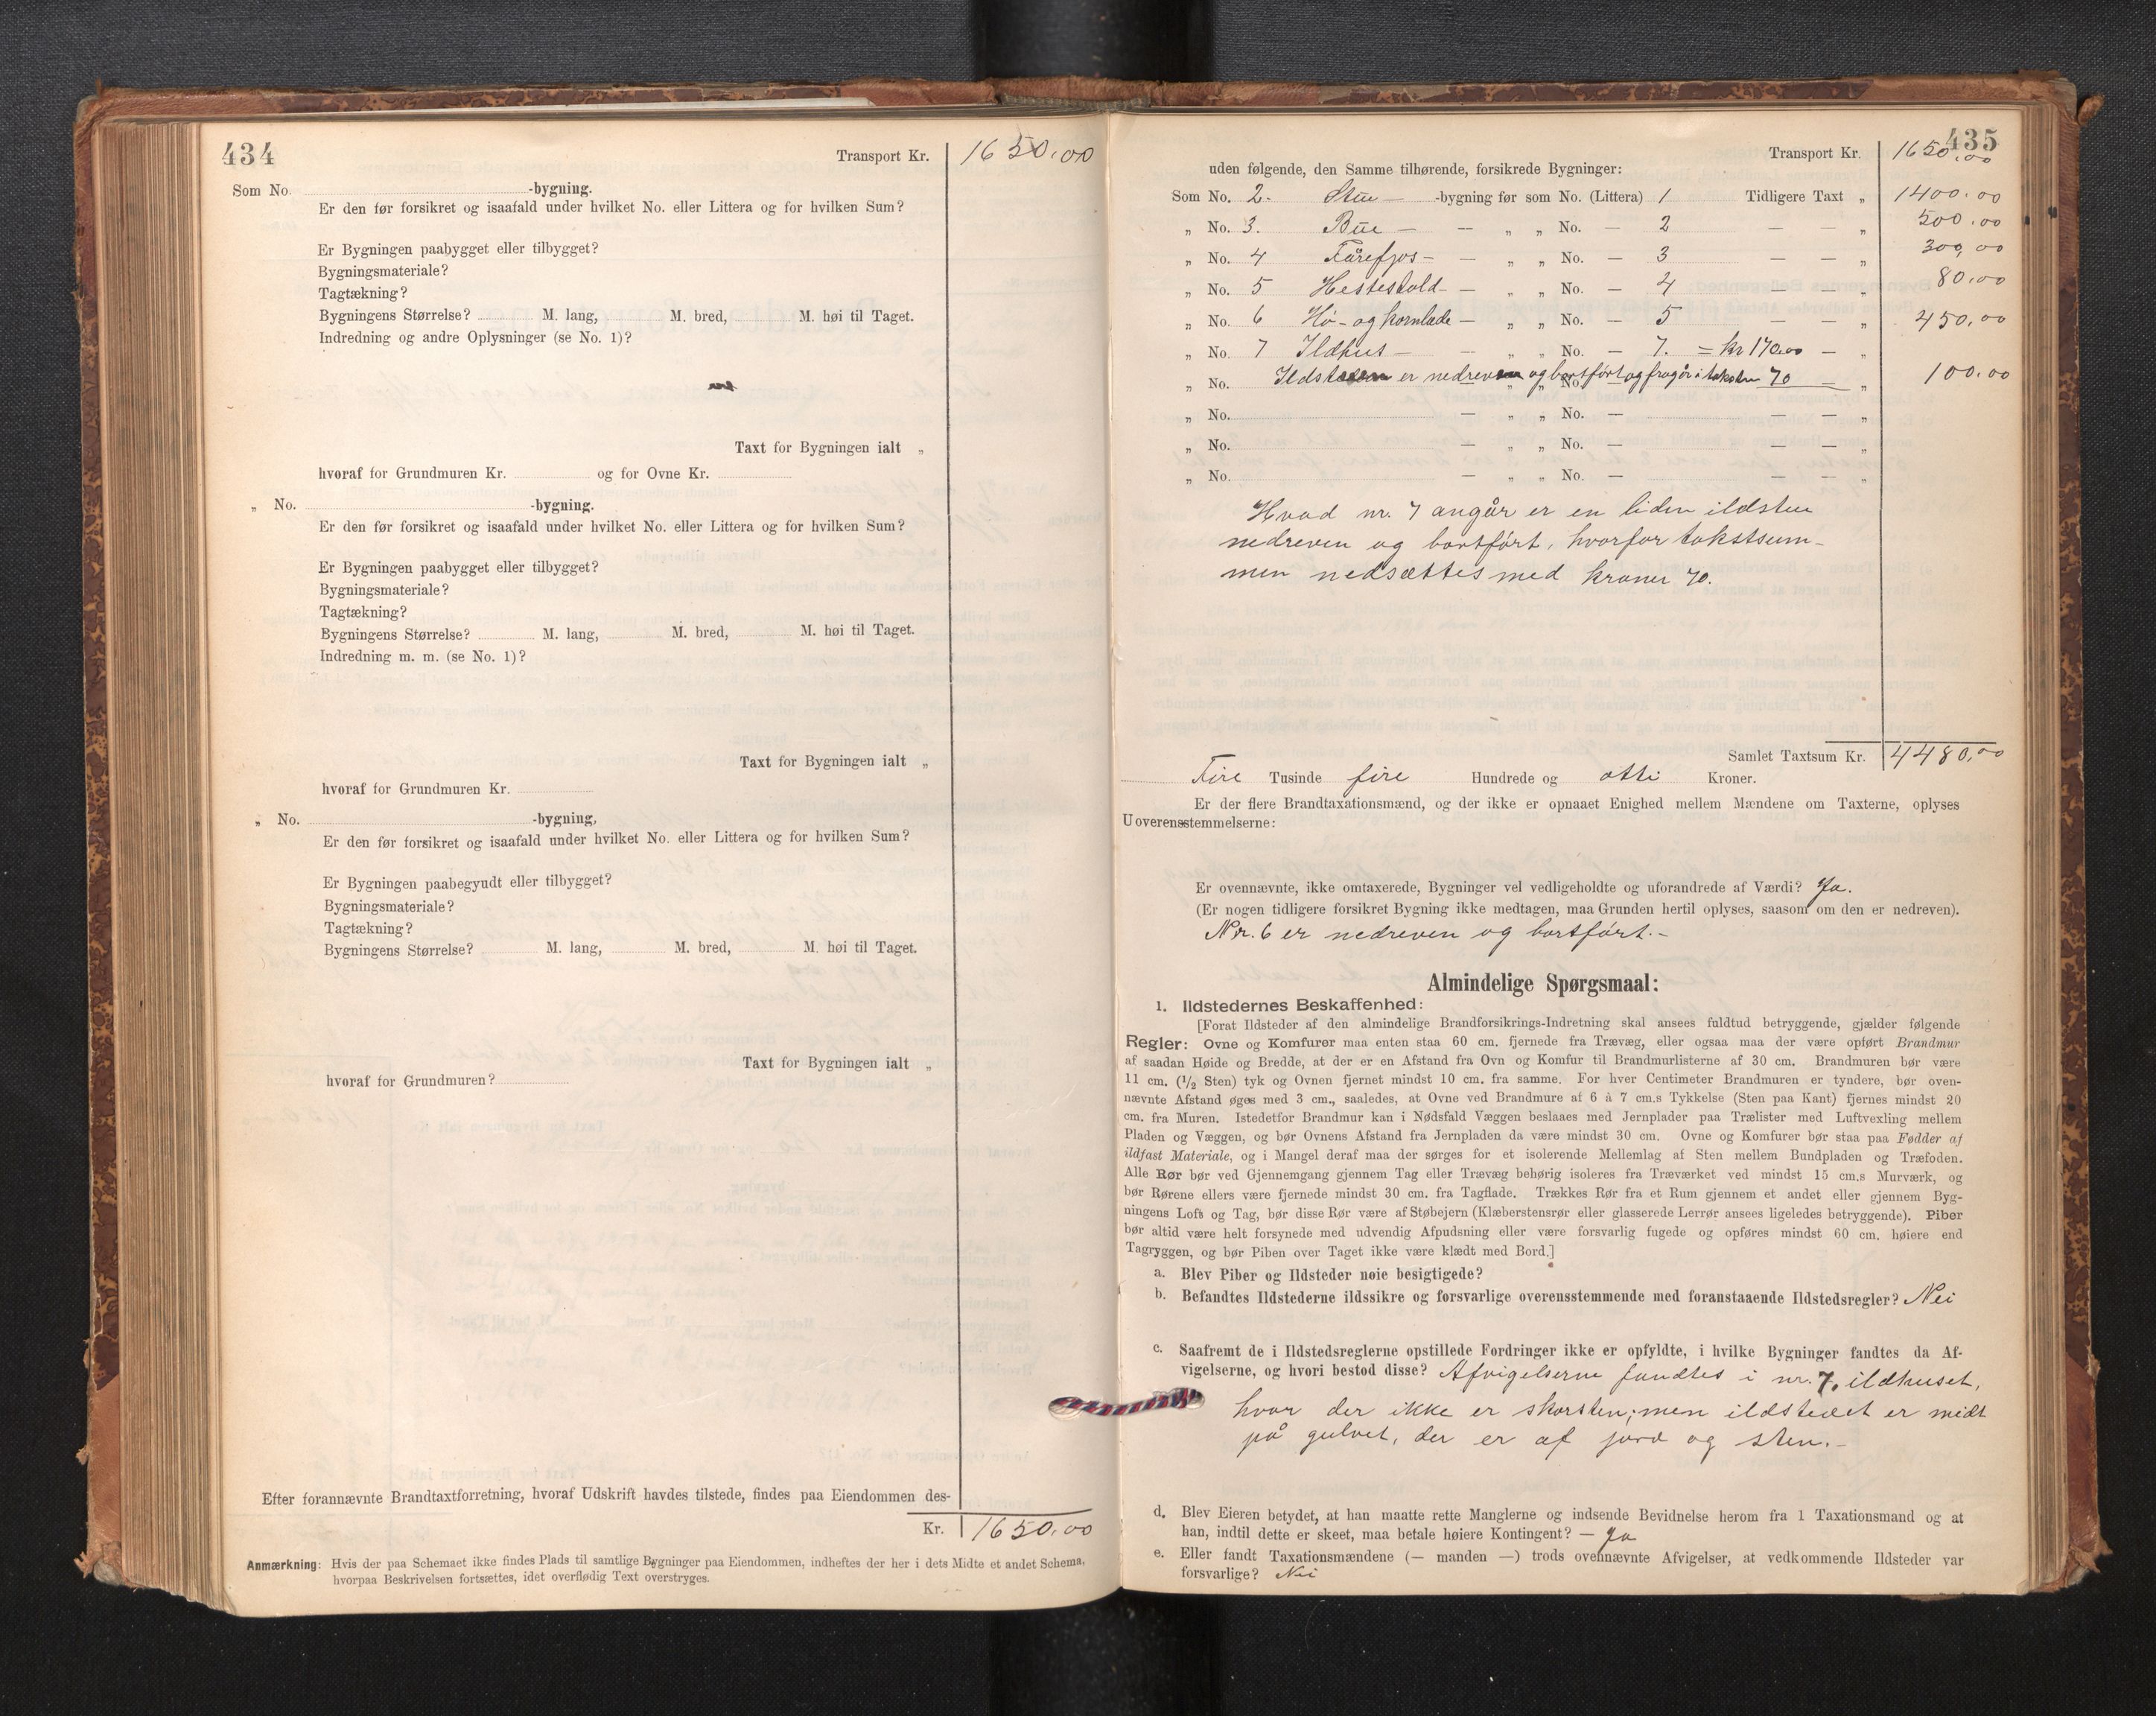 434
Transport Kr. 1650,00
Som No. -bygning.
Er den før forsikret og isaafald under hvilket No. eller Littera og for hvilken Sum?
Er Bygningen paabygget eller tilbygget?
Bygningsmateriale?
Tagtækning?
Bygningens Størrelse? M. lang, M. bred, M. høi til Taget.
Indredning og andre Oplysninger (se No. 1)?
Taxt for Bygningen ialt „
hvoraf for Grundmuren Kr. og for Ovne Kr.
„ No. -bygning.
Er den før forsikret og isaafald under hvilket No. eller Littera og for hvilken Sum?
Er Bygningen paabygget eller tilbygget?
Bygningsmateriale?
Tagtækning?
Bygningens Størrelse? M. lang, M. bred, M. høi til Taget.
Indredning m. m. (se No. 1)?
Taxt for Bygningen ialt „
hvoraf for Grundmuren Kr.
„ No. -bygning,
Er den før forsikret og isaafald under hvilket No. eller Littera og for hvilken Sum?
Er Bygningen paabegyudt eller tilbygget?
Bygningsmateriale?
Tagtækning?
Bygningens Størrelse? M. lang, M. bred, M. høi til Taget.
Taxt for Bygningen ialt „
hvoraf for Grundmuren?
Efter forannævnte Brandtaxtforretning, hvoraf Udskrift havdes tilstede, findes paa Eiendommen des-
Kr. 1650,00
Anmærkning: Hvis der paa Schemaet ikke findes Plads til samtlige Bygninger paa Eiendommen, indheftes der her i dets Midte et andet Schema,
hvorpaa Beskrivelsen fortsættes, idet overflødig Text overstryges.
435
Transport Kr. 1650,00
uden følgende, den Samme tilhørende, forsikrede Bygninger:
Som No. 2. Stue -bygning før som No. (Littera) 1 Tidligere Taxt „ 1400,00
„ No. 3. Bue — — „ „ No. — 2 — — „ 500,00
„ No. 4 Fårefjos — — „ „ No. — 3 — — „ 300,00
„ No. 5 Hestestald — — „ „ No. — 4 — — „ 80,00
„ No. 6 Hø- og kornlade — „ „ No. — 5 — — „ 450,00
„ No. 7 Ildhus — — „ „ No. — 7. = kr 170,00 — „
„ No. er nedreven og bortført og fragår i taksten 70 — „ 100,00
„ No. — „ „ No. — — — „
„ No. — „ „ No. — — — „
„ No. — „ „ No. — — — „
Hvad nr. 7 angår er en liden ildstue
nedreven og bortført, hvorfor takstsum-
men nedsættes med kroner 70.
Samlet Taxtsum Kr. 4480,00
Fire Tusinde fire Hundrede og otti Kroner.
Er der flere Brandtaxationsmænd, og der ikke er opnaaet Enighed mellem Mændene om Taxterne, oplyses
Uoverensstemmelserne:
Er ovennævnte, ikke omtaxerede, Bygninger vel vedligeholdte og uforandrede af Værdi? Ja.
(Er nogen tidligere forsikret Bygning ikke medtagen, maa Grunden hertil oplyses, saasom om den er nedreven).
Nr. 6 er nedreven og bortført.-
Almindelige Spørgsmaal:
1. Ildstedernes Beskaffenhed:
[Forat Ildsteder af den almindelige Brandforsikrings-Indretning skal ansees fuldtud betryggende, gjælder følgende
Regler: Ovne og Komfurer maa enten staa 60 cm. fjernede fra Trævæg, eller ogsaa maa der være opført Brandmur
af saadan Høide og Bredde, at der er en Afstand fra Ovn og Komfur til Brandmurlisterne af 30 cm. Brandmuren bør være
11 cm. (1/2 Sten) tyk og Ovnen fjernet mindst 10 cm. fra samme. For hver Centimeter Brandmuren er tyndere, bør oven-
nævnte Afstand øges med 3 cm., saaledes, at Ovne ved Brandmure af 6 à 7 cm.s Tykkelse (Sten paa Kant) fjernes mindst 20
cm. fra Muren. Istedetfor Brandmur kan i Nødsfald Væggen beslaaes med Jernplader paa Trælister med Luftvexling mellem
Pladen og Væggen, og bør Ovnens Afstand fra Jernpladen da være mindst 30 cm. Ovne og Komfurer bør staa paa Fødder af
ildfast Materiale, og i Mangel deraf maa der sørges for et isolerende Mellemlag af Sten mellem Bundpladen og Træfoden.
Alle Rør bør ved Gjennemgang gjennem Tag eller Trævæg behørig isoleres fra Træværket ved mindst 15 cm.s Murværk, og
bør Rørene ellers være fjernede mindst 30 cm. fra Tagflade. Trækkes Rør fra et Rum gjennem et andet eller gjennem Byg-
ningens Loft og Tag, bør disse Rør være af Støbejern (Klæberstensrør eller glasserede Lerrør ansees ligeledes betryggende). Piber
bør altid være helt forsynede med udvendig Afpudsning eller være forsvarlig fugede og opføres mindst 60 cm. høiere end
Tagryggen, og bør Piben over Taget ikke være klædt med Bord.]
a. Blev Piber og Ildsteder nøie besigtigede?
b. Befandtes Ildstederne ildssikre og forsvarlige overensstemmende med foranstaaende Ildstedsregler? Nei
c. Saafremt de i Ildstedsreglerne opstillede Fordringer ikke er opfyldte, i hvilke Bygninger fandtes da Af-
vigelserne, og hvori bestod disse? Afvigelserne fandtes i nr. 7, ildhuset,
hvor der ikke er skorsten; men ildstedet er midt
på gulvet, der er af jord og sten.-
d. Blev Eieren betydet, at han maatte rette Manglerne og indsende Bevidnelse herom fra 1 Taxationsmand og at
han, indtil dette er skeet, maa betale høiere Kontingent? — Ja
e. Eller fandt Taxationsmændene (— manden —) trods ovennævnte Afvigelser, at vedkommende Ildsteder var
forsvarlige? Nei